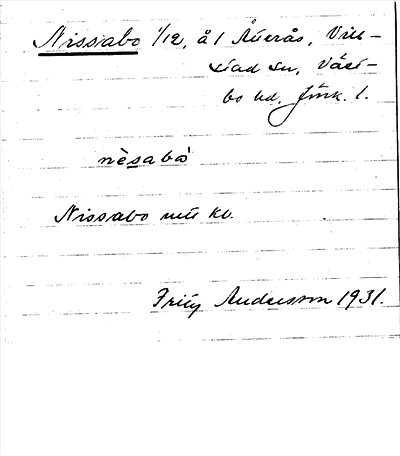 Nissabo 1/12, å 1 Åverås, Vill-
stad sn, Väst-
bo hd, Jönk. l.
nèsabò
Nissabo mtl kb.
Fritz Andersson 1931.